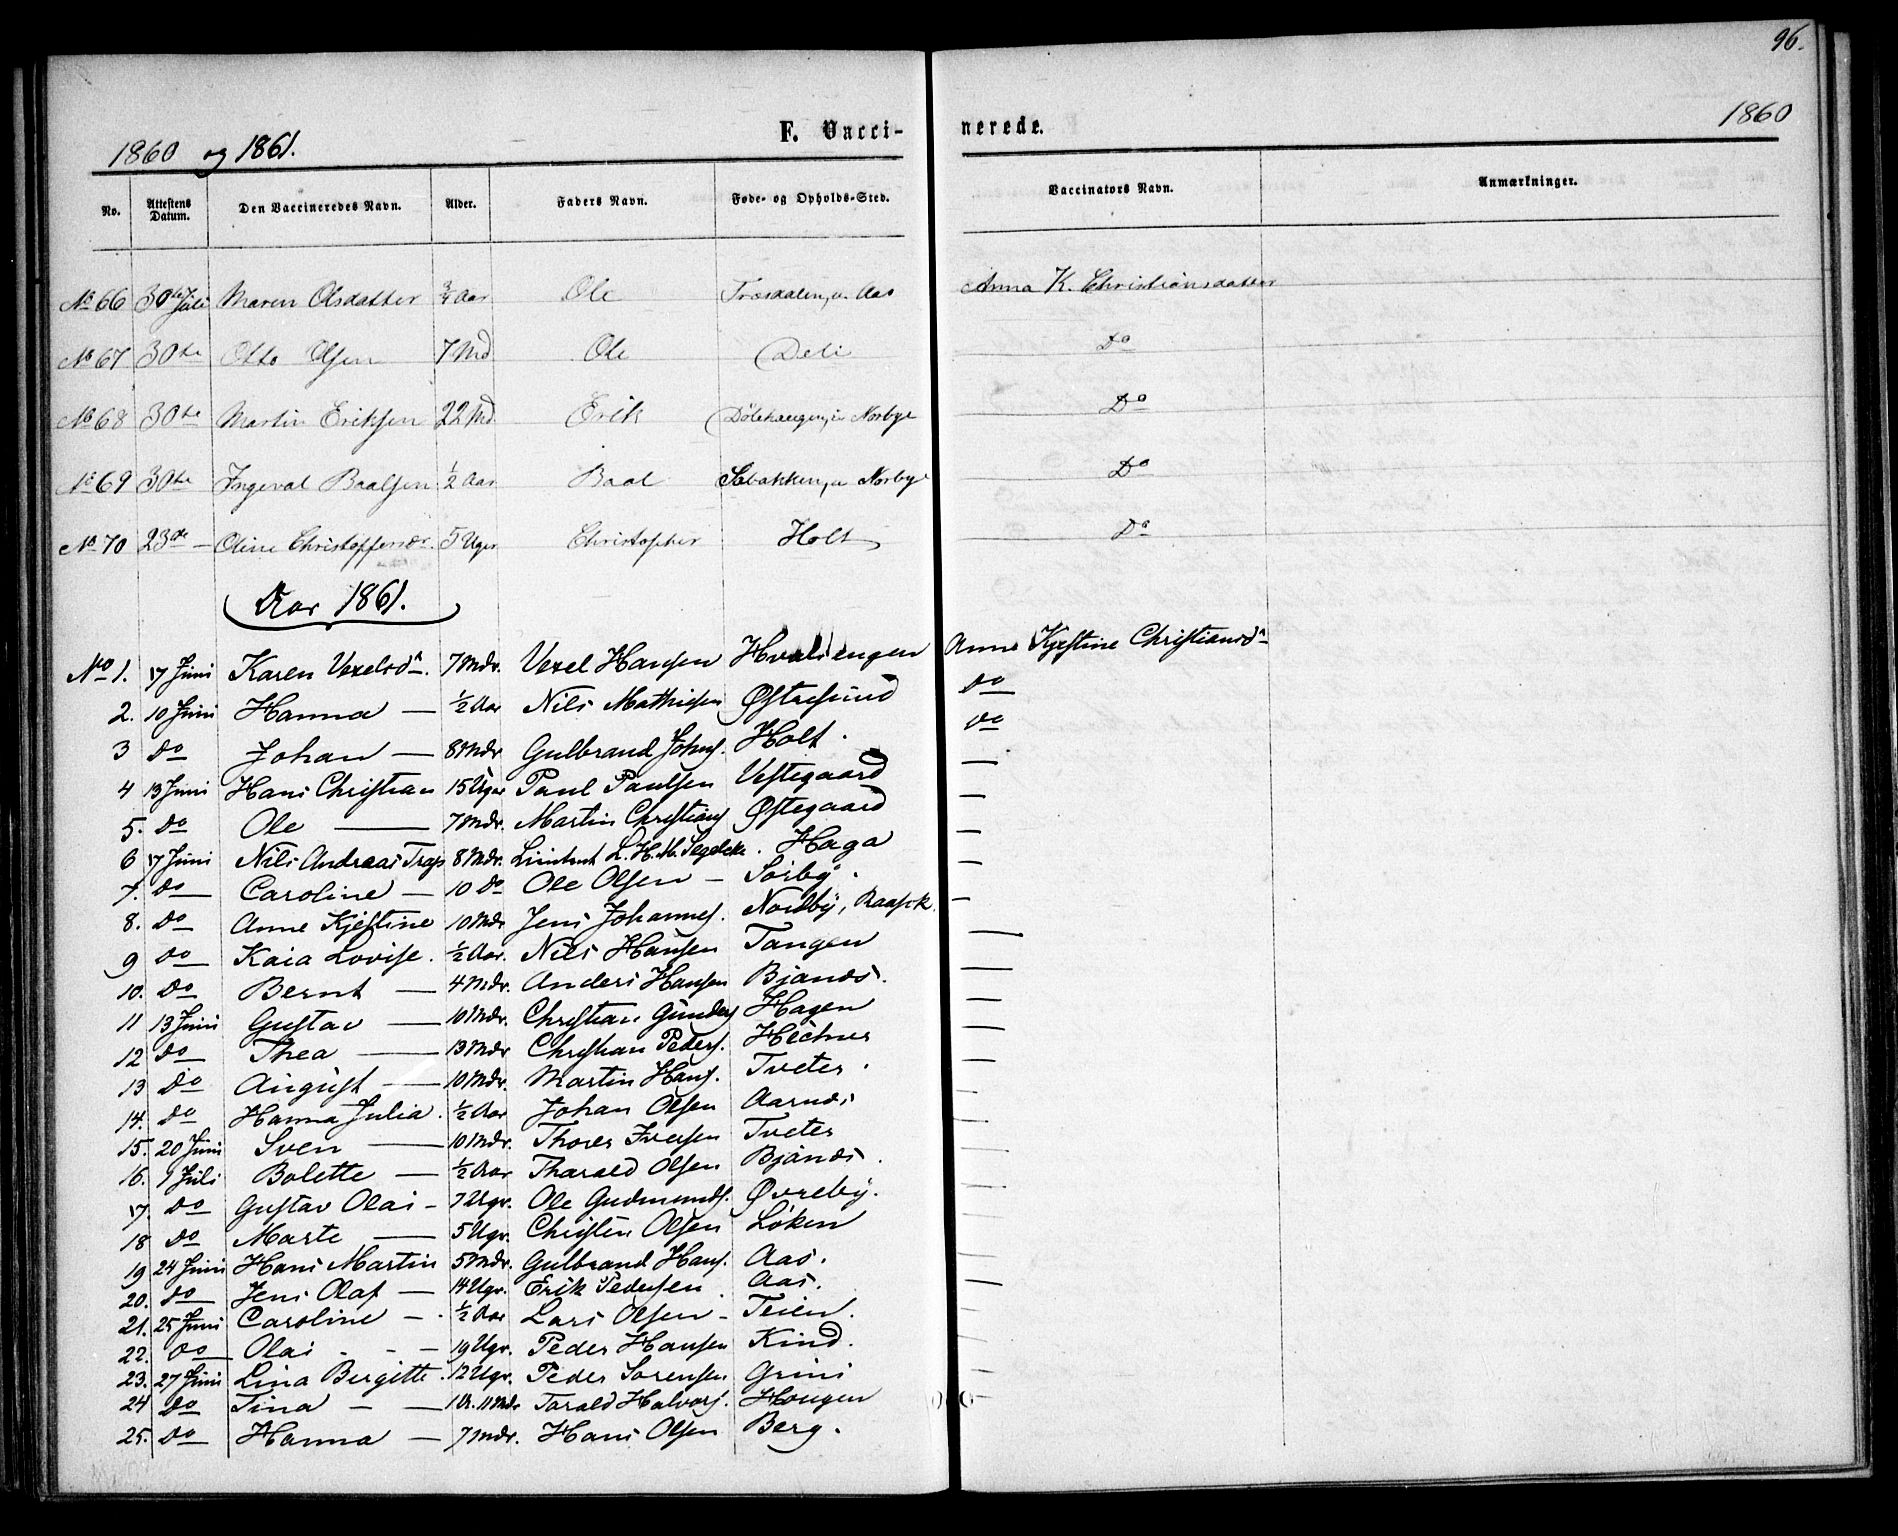 96.
1860 og 1861.
F. Vacci-
nerede.
1860
No. Attestens Datum. Den Vaccineredes Navn. Alder. Faders Navn. Føde- og Opholds-Sted. Vaccinators Navn. Anmærkninger.
No 66 30te Juli Maren Olsdatter 3/4 Aar Ole Træsdalen, u. Aas Anna K. Christiansdatter
No 67 30te Otto Olsen 7 Md Ole Deli Do
No 68 30te Martin Eriksen 22 Md Erik Norbye Do
No 69 30te Ingeval Baalsen 1/2 Aar Baal Norbye Do
No 70 23de – Oline Christoffersdr. 5 Uger Christopher Holt Do
Aar 1861.
No 1. 17 Juni Karen Vexelsdr. 7 Mdr. Vexel Hansen Anne Kjestine Christiansdr
2. 10 Juni Hanna — 1/2 Aar Nils Mathisen Østresund do
3 do Johan — 8 Mdr Gulbrand Johns. Holt. do
4 13 Juni Hans Christian 15 Uger Paul Paulsen Vestegaard —
5. do Ole — 7 Mdr. Martin Christians Østegaard —
6 17 Juni Nils Andreas Trap 8 Mdr. L. H. M. Segelcke. Haga —
7. do Caroline — 10 Do Ole Olsen – Sörby. —
8. do Anne Kjestine 10 Mdr Jens Johannes. Nordby, —
9 do Kaia Lovise. 1/2 Aar. Nils Hansen Tangen —
10. do Bernt — 4 Mdr. Anders Hansen Bjanes. —
11 13 Juni Gustav — 10 Mdr. Christian Gunders Hagen —
12 do Thea — 13 Mdr Christian Peders. Hechner —
13 do August — 10 Mdr. Martin Hans. Tveter. —
14. do Hanna Julia. 1/2 Aar Johan Olsen Aarnes —
15. 20 Juni Sven — 10 Mdr. Thorer Iversen Tveter —
16. 9 Juli Bolette — 1/2 Aar Tharald Olsen Bjanes. —
17. do Gustav Olai – 7 Ugr. Ole Gudmunds. Øvreby. —
18 do Marte — 5 Ugr. Christen Olsen Löken —
19 24 Juni Hans Martin 5 Mdr. Gulbrand Hans. Aas. —
20. do Jens Olaf — 14 Ugr. Erik Pedersen Aas. —
21. 25 Juni Caroline –. 1/2 Aar Lars Olsen – Teien. —
22. do Olai - - – 19 Ugr. Peder Hansen Kind. —
23. 27 Juni Lina Birgitte. 12 Ugr. Peder Sorensen Grini —
24 do Tina – — 1 A. 11 Mdr Tarald Halvors. Hougen —
25. do Hanna — 7 Mdr. Hans Olsen Berg. —